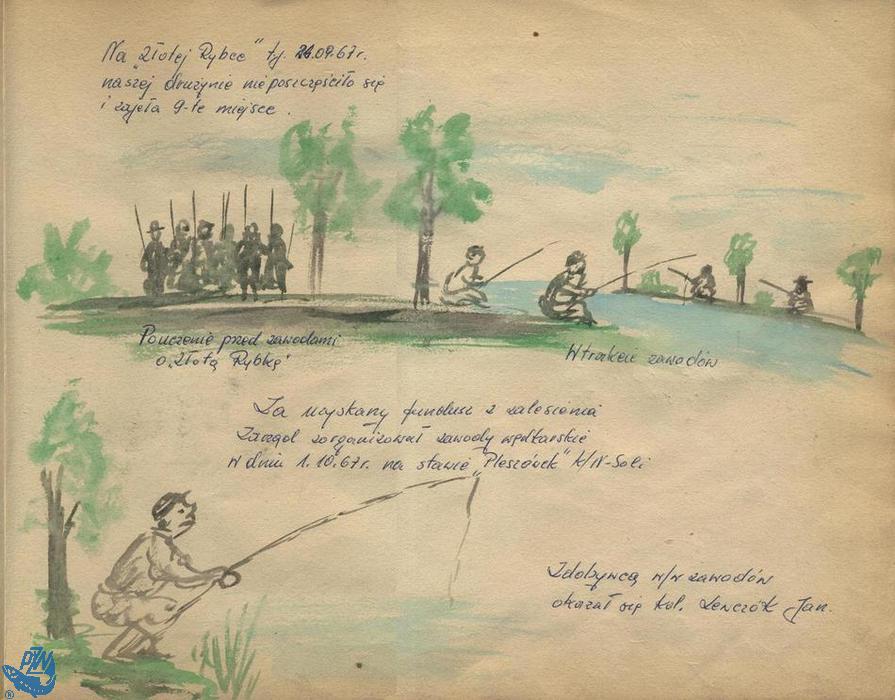 Na „Złotej Rybce" tj. 24.09.67r.
naszej drużynie nie poszczęściło się
i zajęła 9-te miejsce.
Pouczenie przed zawodami
o „Złotą Rybkę"
W trakcie zawodów
Za uzyskany fundusz z zalesienia
Zarząd zorganizował zawody wędkarskie
w dniu 1.10.67r. na stawie „Pleszówek" k/N-Soli
Zdobywcą w/w zawodów
okazał się kol. Lenczók Jan.
PZW
®